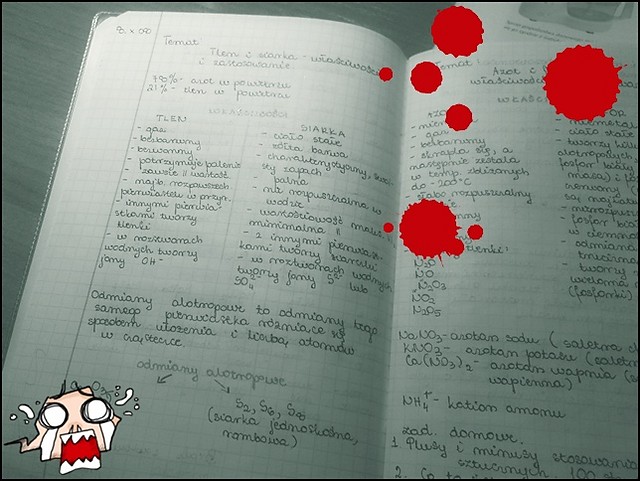 Temat
Tlen i siarka - właściwości
i zastosowanie
78% - azot w powietrzu
21% - tlen w powietrzu
WŁAŚCIWOŚCI
TLEN
- gaz
- bezbarwny
- bezwonny
- potrzymuje palenie
- zawsze II wartość.
- najb. rozpowszech
pierwiastek w przyr.
- z innymi pierwia-
stkami tworzy
tlenki
- w roztworach
wodnych tworzy
jony OH⁻
SIARKA
- ciało stałe
- żółta barwa
- charakterystyczny,
sty zapach
- palna
- nie rozpuszczalna w
wodzie
- wartościowość
minimalna II
- z innymi pierwiast-
kami tworzy siarczki
- w roztworach wodnych
tworzy jony S²⁻ lub
SO₄
Odmiany alotropowe to odmiany tego
samego pierwiastka różniące się
sposobem ułożenia i liczbą atomów
w cząsteczce.
odmiany alotropowe
O₃
S₂, S₆, S₈
(siarka jednoskośna,
rombowa)
Temat
Azot i
właściwości
WŁAŚCI
- gaz
- bezbarwny
- skrapla się, a
następnie zestala
w temp. zbliżonych
do -200°C
- słabo rozpuszczalny
tlenki:
N₂O
NO
N₂O₃
NO₂
N₂O₅
- ciało stałe
- tworzy kilka
alotropowych
(fosfor biały
masa) i
czerwony
są najbar
- nierozpusz
- fosfor
w ciemno
- odmiana
- tworzy
wieloma
(fosforki)
NaNO₃ - azotan sodu (saletra
KNO₃ - azotan potasu (saletra
Ca(NO₃)₂ - azotan wapnia (
wapienna)
NH₄⁺ - kation amonu
zad. domowe.
1. Plusy i minusy stosowania
sztucznych. 100 st
2. Co to